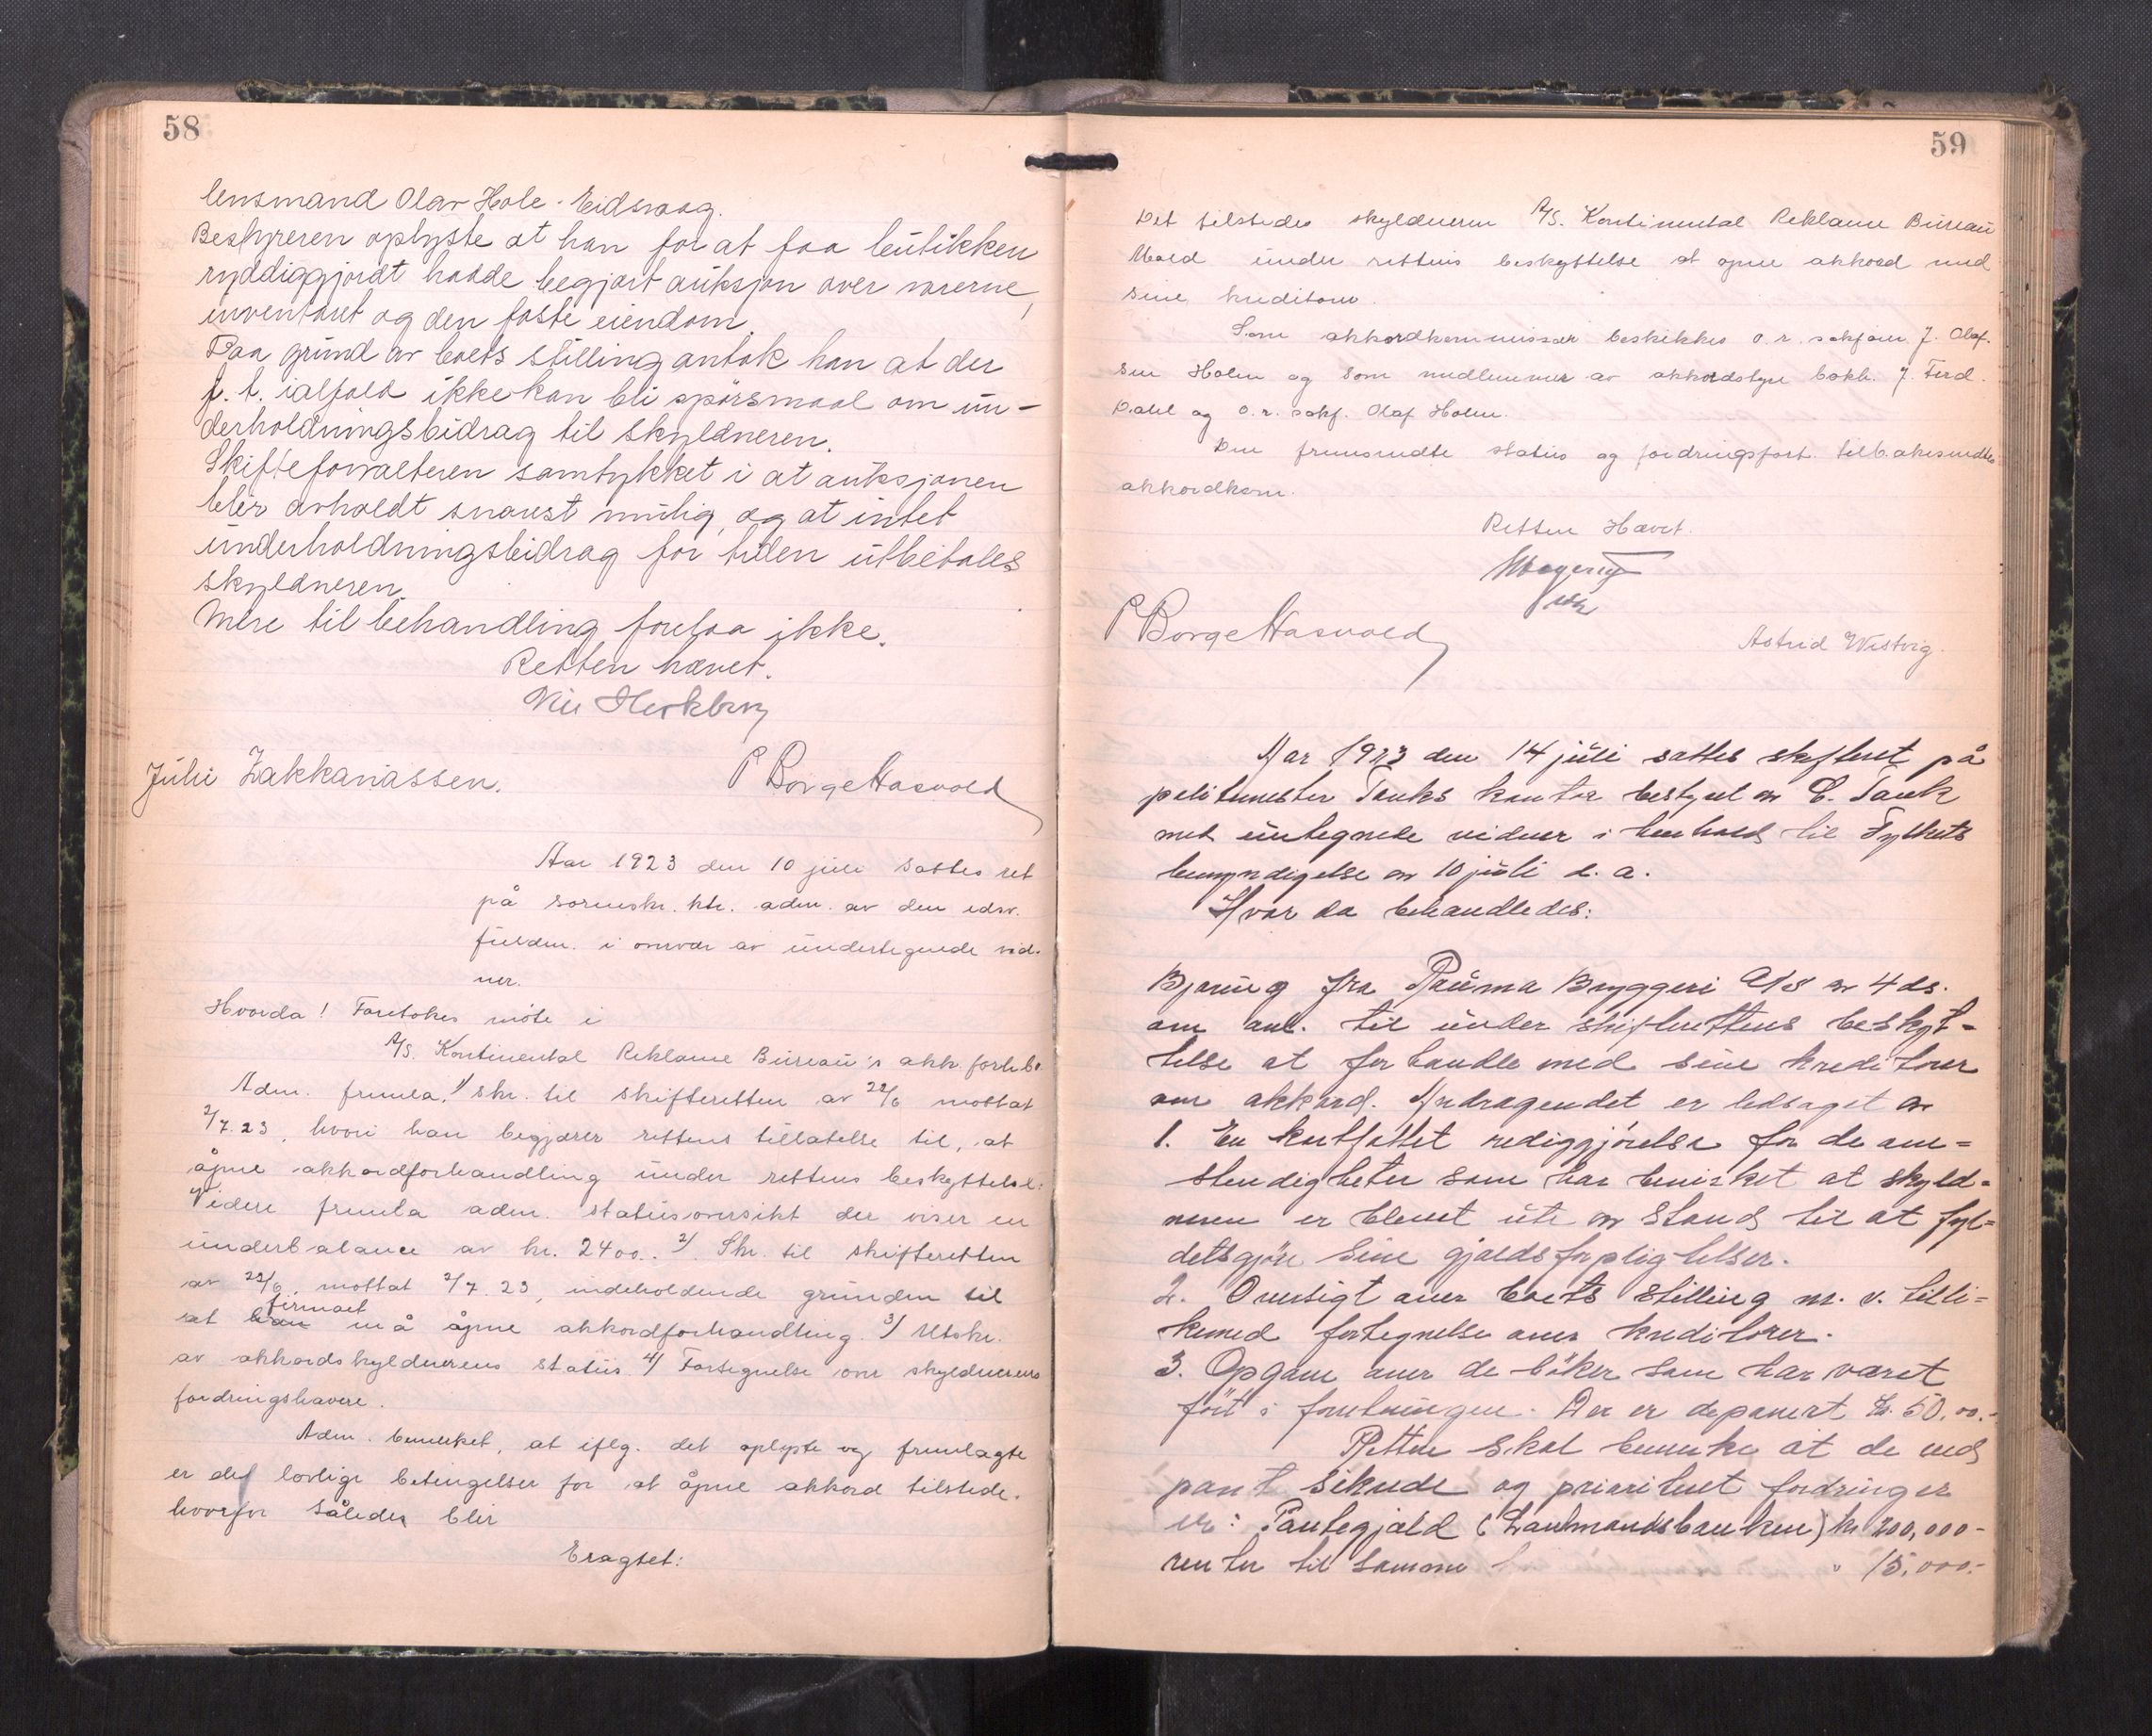 58
lensmand Olav Hole - Eidsvaag.
Bestyreren oplyste at han for at faa butikken
ryddiggjordt hadde begjært auksjon over varerne,
inventaret og den faste eiendom.
Paa grund av boets stilling antok han at der
f. t. ialfald ikke kan bli spørsmaal om un-
derholdningsbidrag til skyldneren.
Skifteforvalteren samtykket i at auksjonen
blir avholdt snarest mulig, og at intet
underholdningsbidrag for tiden utbetales
skyldneren.
Mere til behandling forelaa ikke.
Retten hævet.
Juli Zakkariassen.
P Borge Hasvold
Aar 1923 den 10 juli sattes ret
på sorenskr. ktr. adm. av den edsv.
fuldm. i overvær av undertegnede vid-
ner.
Hvorda! Foretokes møte i
A/S. Kontinental Reklame Bureau's akk. forh.bo
Adm. fremla: 1/ skr. til skifteretten av 22/6 mottat
2/7.23, hvori han begjærer rettens tillatelse til, at
åpne akkordforhandling under rettens beskyttelse.
Videre fremla adm. statusoversikt der viser en
underbalance av kr. 2400.. 2/ Skr. til skifteretten
av 22/6, mottat 2/7.23, indeholdende grunden til
at han firmaet må åpne akkordforhandling. 3/ Utskr.
av akkordskyldnerens status. 4/ Fortegnelse over skyldnerens
fordringshavere.
Adm. bemerket, at iflg. det oplyste og fremlagte
er det lovlige betingelser for at åpne akkord tilstede.
hvorfor således blir
Eragtet:
59
Det tilstedes skyldneren A/S. Kontinental Reklame Bureau
Mold under rettens beskyttelse at åpne akkord med
sine kreditorer.
Som akkordkommissær beskikkes o.r. sakfører J. Olaf-
sen Holm og som medlemmer av akkordstyre bokh. J. Ferd.
Dahl og o.r. sakf. Olaf Holm.
Den fremsendte status og fordringsfort. tilbakesendtes
akkordkom.
Retten Hævet.
P Borge Hasvold
Astrid Westvig.
Aar 1923 den 14 juli sattes skifteret på
politimester Tanks kontor bestyret av C. Tank
med untegnede vidner i henhold til Fylkets
bemyndigelse av 10 juli d. a.
Hvor da behandledes:
Bjæring fra Rauma Bryggeri A/S av 4 ds.
om anl. til under skifterettens beskyt-
telse at forhandle med sine kreditorer
om akkord. Andragendet er ledsaget av
1. En kortfattet rediggjørelse for de om-
stendigheter som har bevirket at skyld-
neren er blevet ute av stand til at fyl-
destgjøre sine gjældsforpligtelser.
2. Oversigt over boets stilling m. v. tilli-
kemed fortegnelse over kreditorer.
3. Opgave over de bøker som har været
ført i forretningen. Der er deponert kr. 50,00.-
Retten skal bemerke at de ved
pant sikrede og prioritert fordringer
er: Pantegjæld (Landmandsbanken) kr 200,000-
renter til samme " 15,000.-